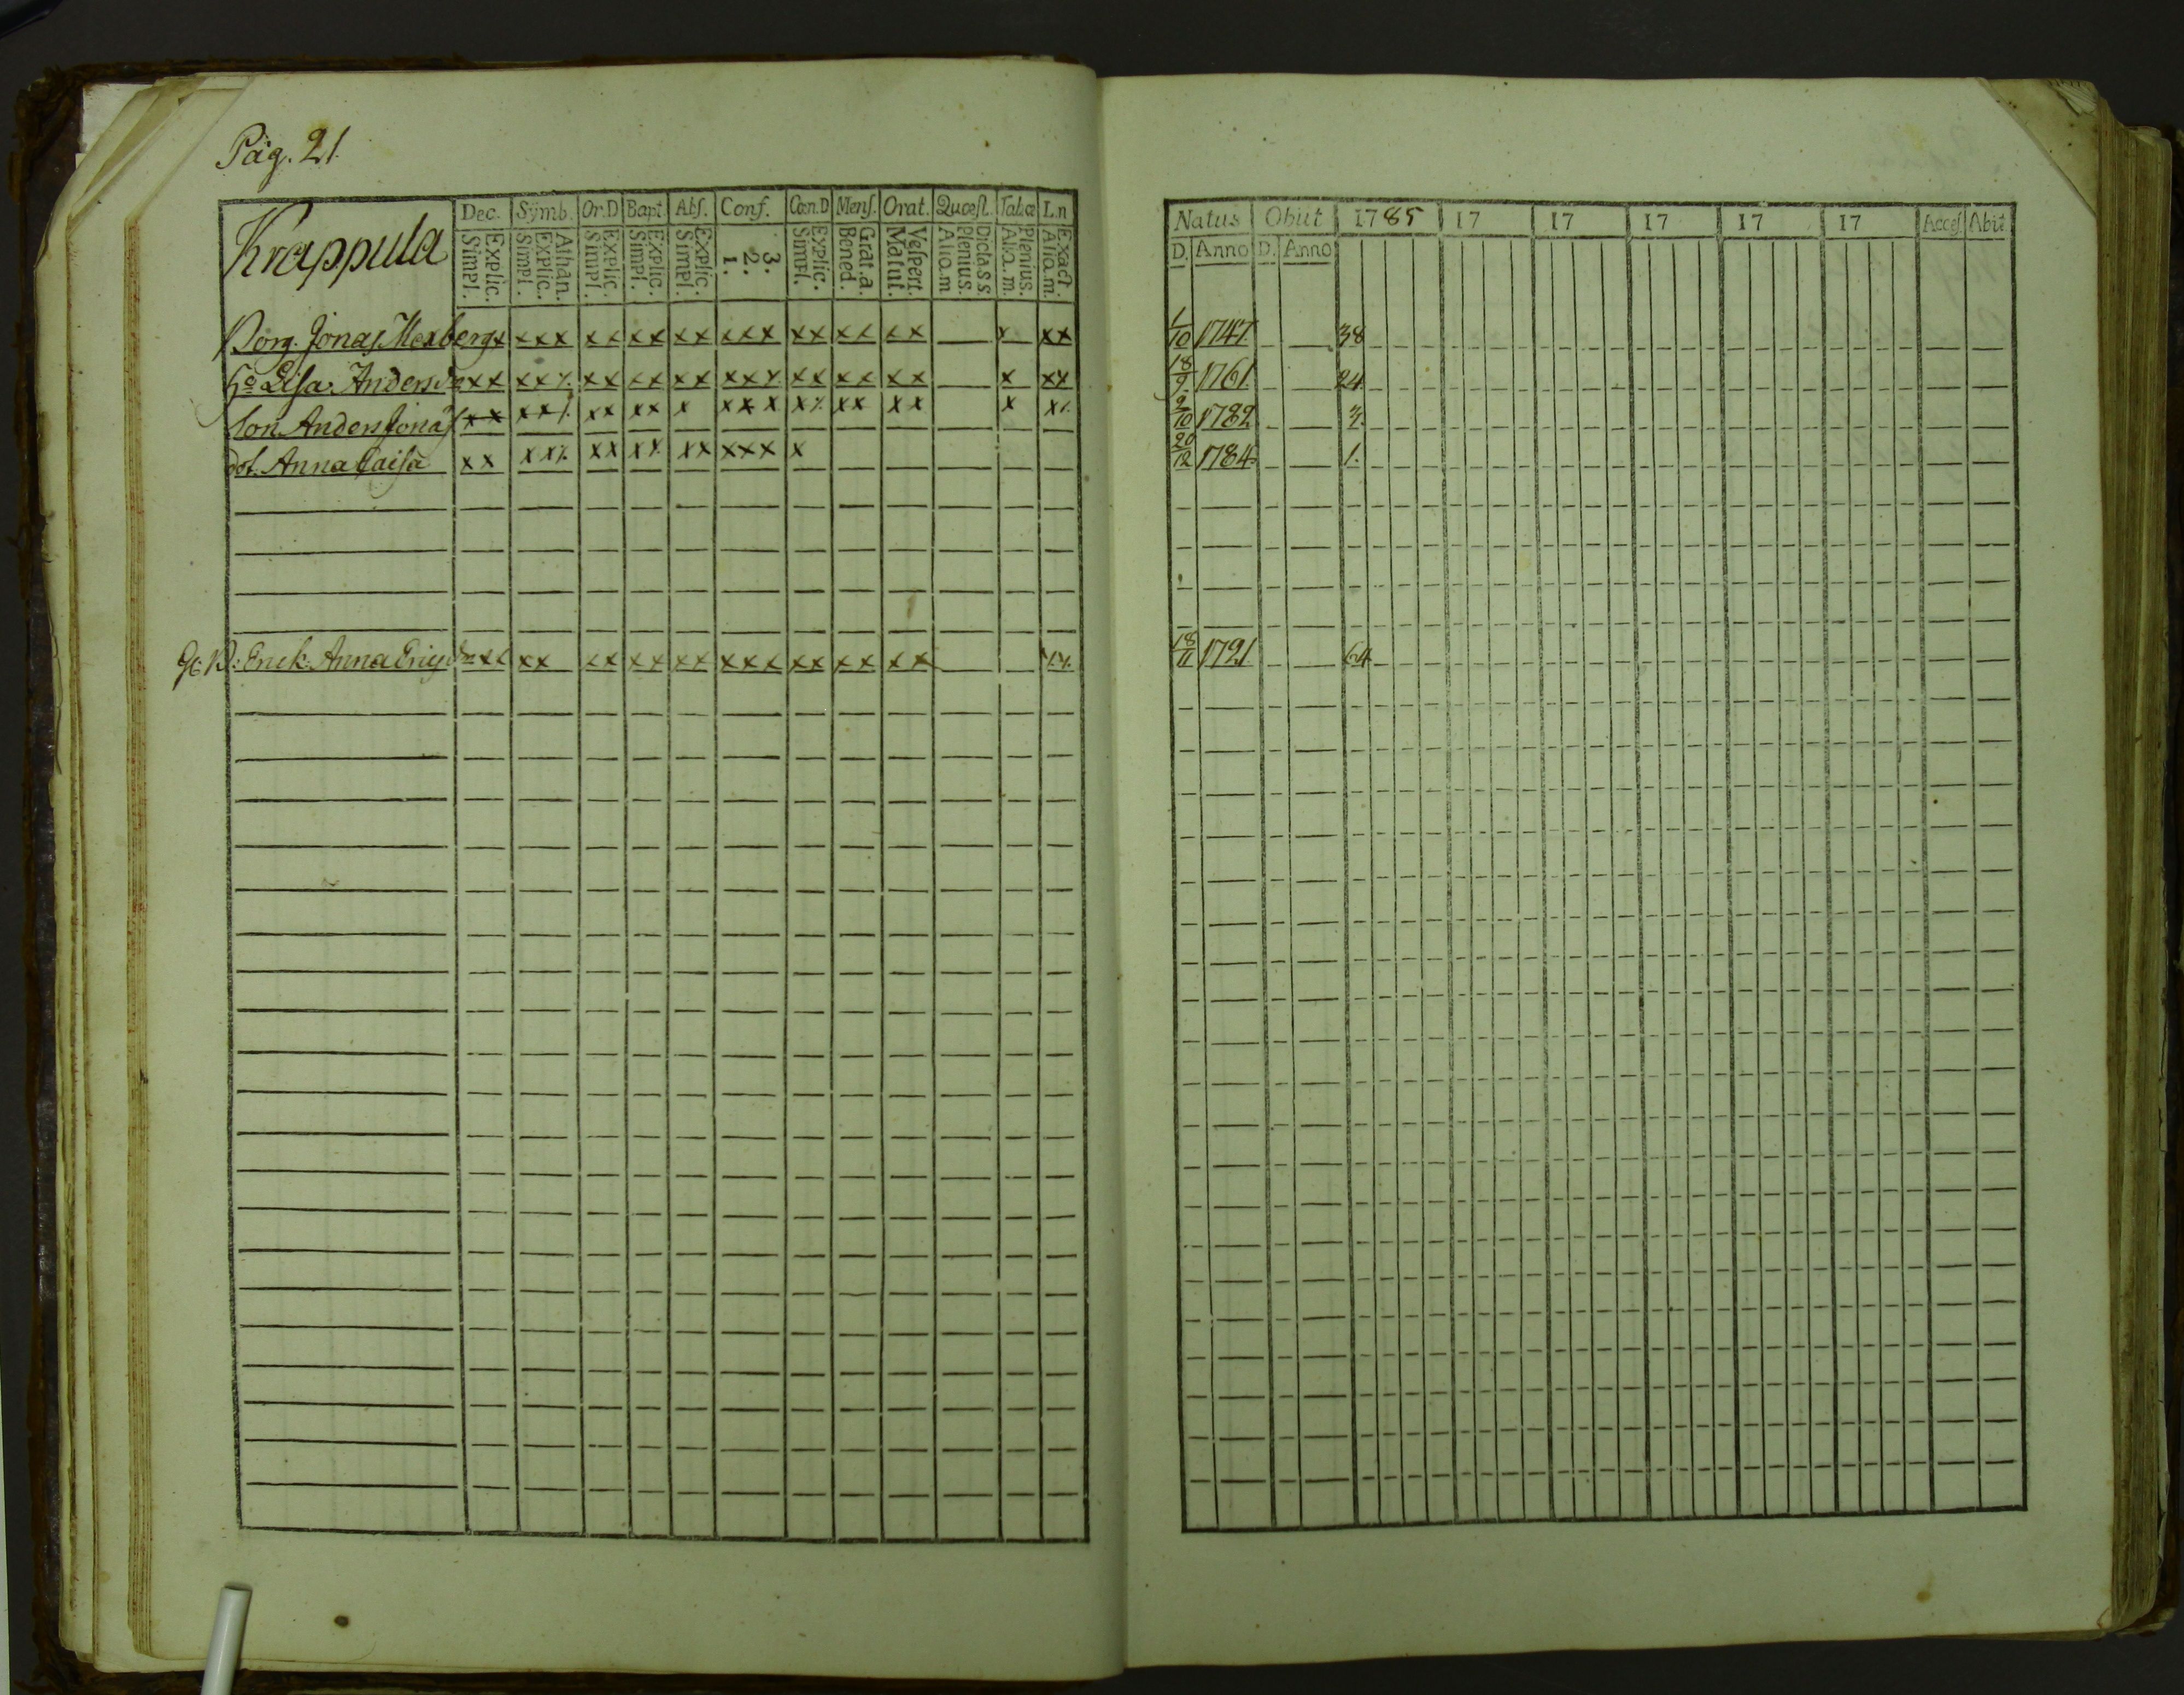 Pag. 21.
Krappula
Dec. Symb. Or.D Bapt. Abſ. Conf. Cœn.D Menſ. Orat. Quœſt. Tab.œ L.n
Explic. Simpl. Athan. Explic. Simpl. Explic. Simpl. Explic. Simpl. Explic. Simpl. 3. 2. 1. Explic. Simpl. Grat.a. Bened. Veſpert. Matut. Dicta S S. Plenius. Aliq.m Plenius. Aliq.m. Exact. Aliq.m.
Jonas x x x x x x x x x x x x x x x x x x x x x x x
Lisa Anders x x x x x x x x x x x x x x x x x x x x x x x
Son Anders Jonas x x x x x x x x x x x x x x x x x x x x x
dot. Anna Caisa x x x x x x x x x x x x x x x
Enck. Anna x x x x x x x x x x x x x x x x x x x x
Natus Obiit 1785 17 17 17 17 17 Acceſ Abit
D. Anno D. Anno
1/10 1747. 38
18/9 1761. 24
2/10 1782 3.
20/12 1784 1.
18/11 1721. 64